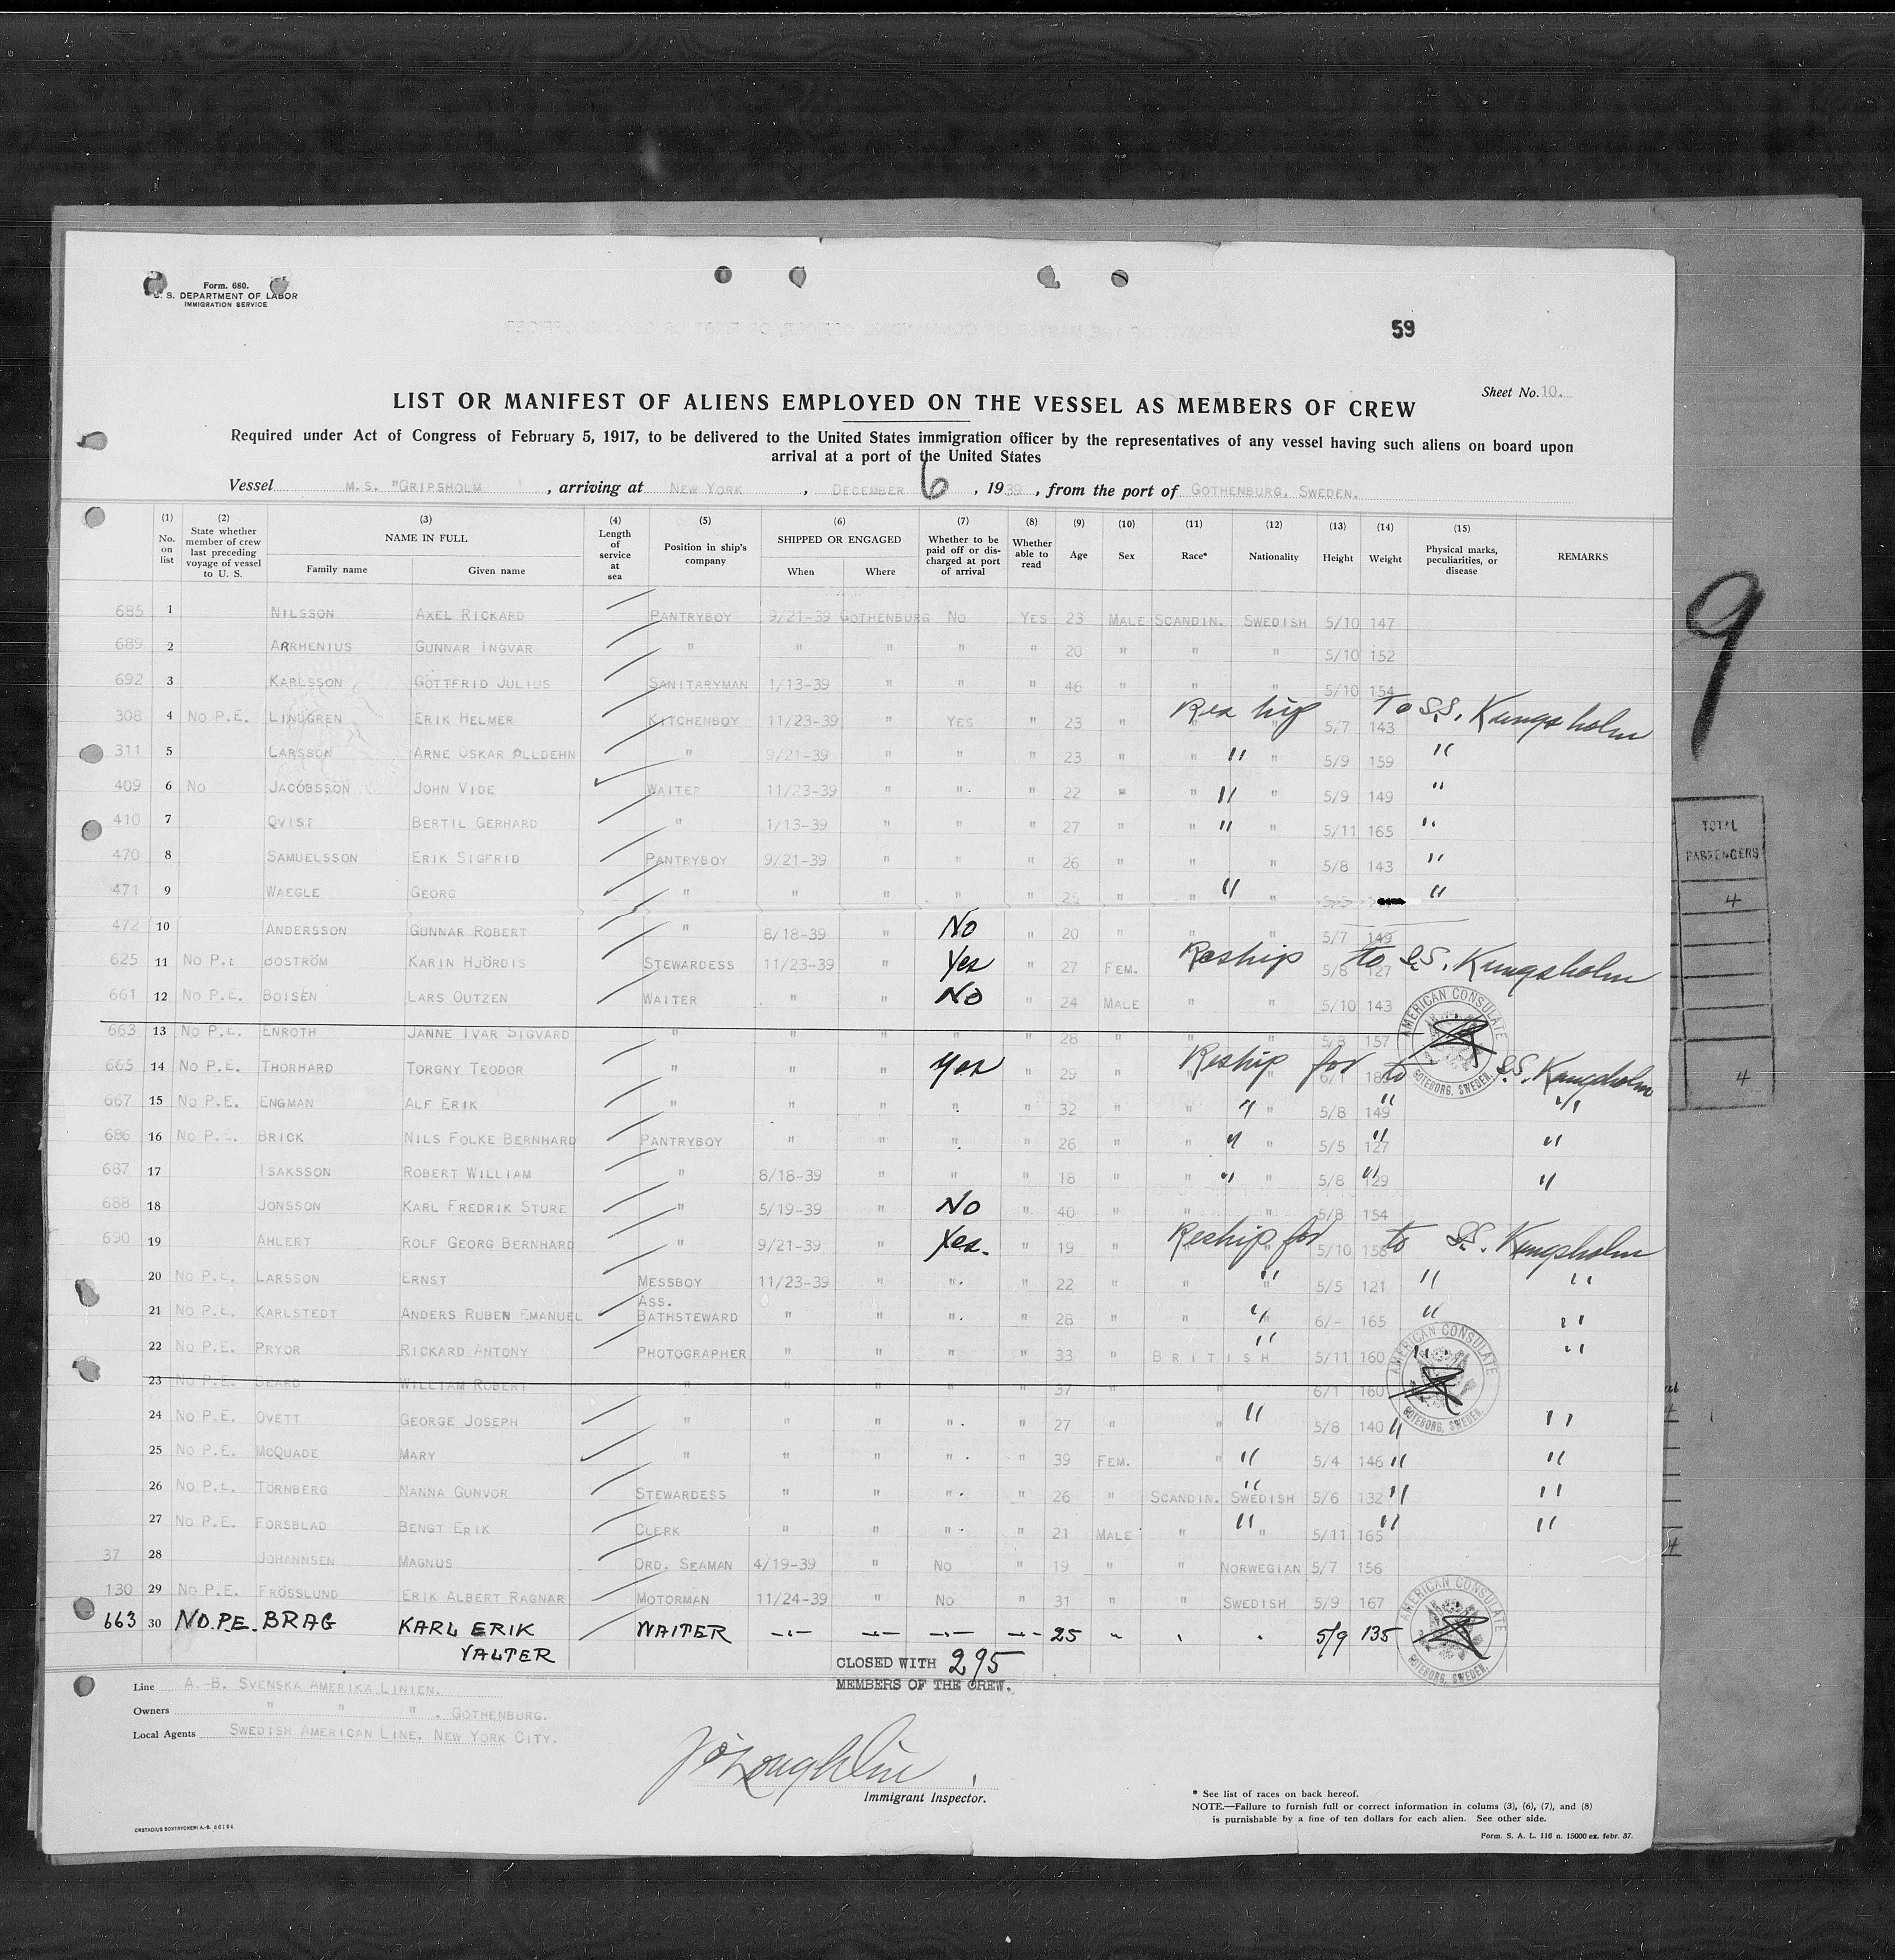 Form. 680.
U. S. DEPARTMENT OF LABOR
IMMIGRATION SERVICE
59
Sheet No. 10.
LIST OR MANIFEST OF ALIENS EMPLOYED ON THE VESSEL AS MEMBERS OF CREW
Required under Act of Congress of February 5, 1917, to be delivered to the United States immigration officer by the representatives of any vessel having such aliens on board upon
arrival at a port of the United States
Vessel M.S. "GRIPSHOLM" , arriving at NEW YORK , DECEMBER 6 , 1939 , from the port of GOTHENBURG, SWEDEN.
(1) No. on list (2) State whether member of crew last preceding voyage of vessel to U. S. (3) NAME IN FULL Family name Given name (4) Length of service at sea (5) Position in ship's company (6) SHIPPED OR ENGAGED When Where (7) Whether to be paid off or discharged at port of arrival (8) Whether able to read (9) Age (10) Sex (11) Race* (12) Nationality (13) Height (14) Weight (15) Physical marks, peculiarities, or disease REMARKS
685 1 NILSSON AXEL RICKARD PANTRYBOY 9/21-39 GOTHENBURG NO YES 23 MALE SCANDIN. SWEDISH 5/10 147
689 2 ARRHENIUS GUNNAR INGVAR " " " " " 20 " " " 5/10 152
692 3 KARLSSON GOTTFRID JULIUS SANITARYMAN 1/13-39 " " " 46 " " " 5/10 154
308 4 NO P.E. LINDGREN ERIK HELMER KITCHENBOY 11/23-39 " YES " 23 " Reship 5/7 143 To S.S. Kungsholm
311 5 LARSSON ARNE OSKAR ALLDEHN " 9/21-39 " " " 23 " " " " 5/9 159 "
409 6 NO JACOBSSON JOHN VIDE WAITER 11/23-39 " " " 22 " " " " 5/9 149 "
410 7 QVIST BERTIL GERHARD " 1/13-39 " " " 27 " " " " 5/11 165 "
470 8 SAMUELSSON ERIK SIGFRID PANTRYBOY 9/21-39 " " " 26 " " " 5/8 143 "
471 9 WAEGLE GEORG " " " " " 25 " " " " 5/5 "
472 10 ANDERSSON GUNNAR ROBERT " 8/18-39 " No " 20 " " " 5/7 149
625 11 NO P.E BOSTRÖM KARIN HJÖRDIS STEWARDESS 11/23-39 " Yes " 27 FEM. Reship 5/8 127 to S.S. Kungsholm
661 12 NO P.E. BOISEN LARS OUTZEN WAITER " " No " 24 MALE " " 5/10 143
663 13 NO P.E. ENROTH JANNE IVAR SIGVARD " " " " " 28 " " " 5/8 157
AMERICAN CONSULATE
GÖTEBORG, SWEDEN.
665 14 NO P.E. THORHARD TORGNY TEODOR " " " Yes " 29 " Reship for 6/1 to S.S. Kungsholm
667 15 NO P.E. ENGMAN ALF ERIK " " " " " 32 " " " " 5/8 149 " "
686 16 NO P.E. BRICK NILS FOLKE BERNHARD PANTRYBOY " " " " 26 " " " " 5/5 127 " "
687 17 ISAKSSON ROBERT WILLIAM " 8/18-39 " " " 18 " " " " 5/8 129 " "
688 18 JONSSON KARL FREDRIK STURE " 5/19-39 " No " 40 " " " 5/8 154
690 19 AHLERT ROLF GEORG BERNHARD " 9/21-39 " Yes. " 19 " Reship for 5/10 to S.S. Kungsholm
20 NO P.E. LARSSON ERNST MESSBOY 11/23-39 " " " 22 " " " " 5/5 121 " "
21 NO P.E. KARLSTEDT ANDERS RUBEN EMANUEL ASS. BATHSTEWARD " " " " 28 " " " 6/- 165 " "
22 NO P.E. PRYOR RICKARD ANTONY PHOTOGRAPHER " " " " 33 " BRITISH " 5/11 160 " "
AMERICAN CONSULATE
GÖTEBORG, SWEDEN.
23 NO P.E. BEARD WILLIAM ROBERT " " " " " 37 " " 6/1 160
24 NO P.E. OVETT GEORGE JOSEPH " " " " " 27 " " " 5/8 140 " "
25 NO P.E. MCQUADE MARY " " " " " 39 FEM. " " 5/4 146 " "
26 NO P.E. TÖRNBERG NANNA GUNVOR STEWARDESS " " " " 26 " SCANDIN. SWEDISH " 5/6 132 " "
27 NO P.E. FORSBLAD BENGT ERIK CLERK " " " " 21 MALE " " " 5/11 165 " "
37 28 JOHANNSEN MAGNUS ORD. SEAMAN 4/19-39 " NO " 19 " " NORWEGIAN 5/7 156
130 29 NO P.E. FRÖSSLUND ERIK ALBERT RAGNAR MOTORMAN 11/24-39 " NO " 31 " " SWEDISH 5/9 167
663 30 NO.P.E. BRAG KARL ERIK WAITER -"- -"- -"- -"- 25 " " " 5/9 135
VALTER
AMERICAN CONSULATE
GÖTEBORG, SWEDEN.
CLOSED WITH 295
MEMBERS OF THE CREW.
Line A.-B. SVENSKA AMERIKA LINIEN.
Owners " " " . GOTHENBURG.
Local Agents SWEDISH AMERICAN LINE. NEW YORK CITY.
Immigrant Inspector.
* See list of races on back hereof.
NOTE.—Failure to furnish full or correct information in colums (3), (6), (7), and (8)
is purnishable by a fine of ten dollars for each alien. See other side.
Form. S. A. L. 116 n. 15000 ex. febr. 37.
9
TOTAL
PASSENGERS
4
4